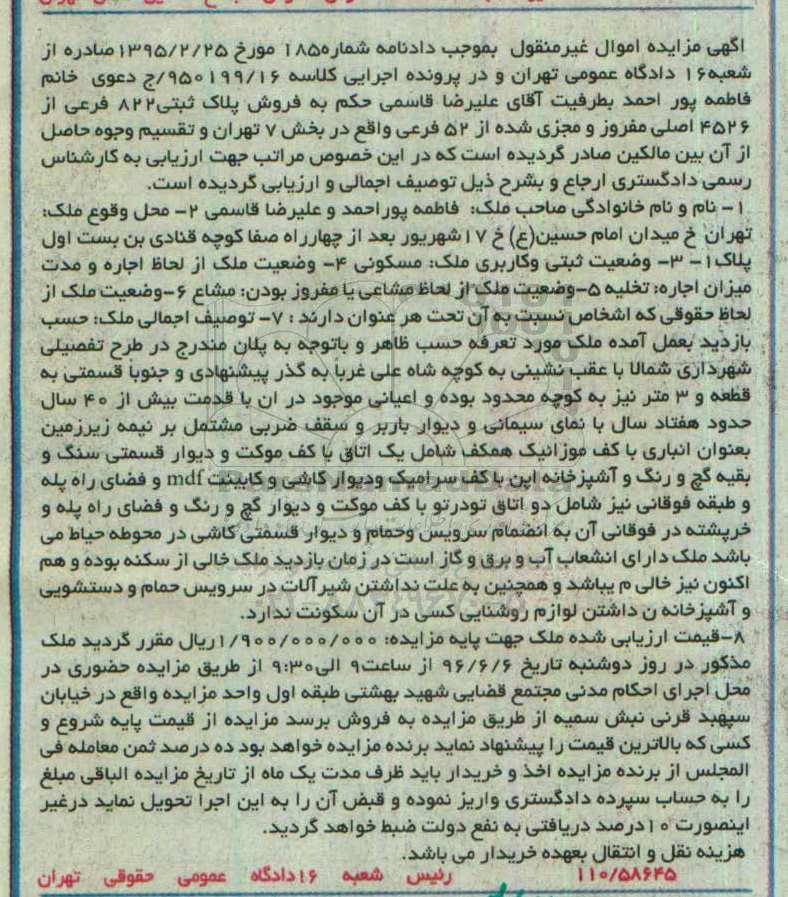 آگهی مزایده اموال غیرمنقول بموجب دادنامه شماره۱۸۵ مورخ ۱۳۹۵/۲/۲۵صادره از
شعبه۱۶ دادگاه عمومی تهران و در پرونده اجرایی کلاسه ۹۵۰۱۹۹/۱۶/ج دعوی خانم
فاطمه پور احمد بطرفیت آقای علیرضا قاسمی حکم به فروش پلاک ثبتی۸۲۲ فرعی از
۴۵۲۶ اصلی مفروز و مجزی شده از ۵۲ فرعی واقع در بخش ۷ تهران و تقسیم وجوه حاصل
از آن بین مالکین صادر گردیده است که در این خصوص مراتب جهت ارزیابی به کارشناس
رسمی دادگستری ارجاع و بشرح ذیل توصیف اجمالی و ارزیابی گردیده است.
۱- نام و نام خانوادگی صاحب ملک: فاطمه پوراحمد و علیرضا قاسمی ۲- محل وقوع ملک:
تهران خ میدان امام حسین(ع) خ ۱۷شهریور بعد از چهارراه صفا کوچه قنادی بن بست اول
پلاک۱- ۳- وضعیت ثبتی وکاربری ملک: مسکونی ۴- وضعیت ملک از لحاظ اجاره و مدت
میزان اجاره: تخلیه ۵-وضعیت ملک از لحاظ مشاعی یا مفروز بودن: مشاع ۶-وضعیت ملک از
لحاظ حقوقی که اشخاص نسبت به آن تحت هر عنوان دارند : ۷- توصیف اجمالی ملک: حسب
بازدید بعمل آمده ملک مورد تعرفه حسب ظاهر و باتوجه به پلان مندرج در طرح تفصیلی
شهرداری شمالا با عقب نشینی به کوچه شاه علی غربا به گذر پیشنهادی و جنوبا قسمتی به
قطعه و ۳ متر نیز به کوچه محدود بوده و اعیانی موجود در ان با قدمت بیش از ۴۰ سال
حدود هفتاد سال با نمای سیمانی و دیوار باربر و سقف ضربی مشتمل بر نیمه زیرزمین
بعنوان انباری با کف موزائیک همکف شامل یک اتاق با کف موکت و دیوار قسمتی سنگ و
بقیه گچ و رنگ و آشپزخانه اپن با کف سرامیک ودیوار کاشی و کابینت mdf و فضای راه پله
و طبقه فوقانی نیز شامل دو اتاق تودرتو با کف موکت و دیوار گچ و رنگ و فضای راه پله و
خرپشته در فوقانی آن به انضمام سرویس وحمام و دیوار قسمتی کاشی در محوطه حیاط می
باشد ملک دارای انشعاب آب و برق و گاز است در زمان بازدید ملک خالی از سکنه بوده و هم
اکنون نیز خالی م یباشد و همچنین به علت نداشتن شیرآلات در سرویس حمام و دستشویی
و آشپزخانه ن داشتن لوازم روشنایی کسی در آن سکونت ندارد.
۸-قیمت ارزیابی شده ملک جهت پایه مزایده: ۱/۹۰۰/۰۰۰/۰۰۰ریال مقرر گردید ملک
مذکور در روز دوشنبه تاریخ ۹۶/۶/۶ از ساعت۹ الی۹:۳۰ از طریق مزایده حضوری در
محل اجرای احکام مدنی مجتمع قضایی شهید بهشتی طبقه اول واحد مزایده واقع در خیابان
سپهبد قرنی نبش سمیه از طریق مزایده به فروش برسد مزایده از قیمت پایه شروع و
کسی که بالاترین قیمت را پیشنهاد نماید برنده مزایده خواهد بود ده درصد ثمن معامله فی
المجلس از برنده مزایده اخذ و خریدار باید ظرف مدت یک ماه از تاریخ مزایده الباقی مبلغ
را به حساب سپرده دادگستری واریز نموده و قبض آن را به این اجرا تحویل نماید درغیر
اینصورت ۱۰درصد دریافتی به نفع دولت ضبط خواهد گردید.
هزینه نقل و انتقال بعهده خریدار می باشد.
۱۱۰/۵۸۶۴۵ رئیس شعبه ۱۶دادگاه عمومی حقوقی تهران